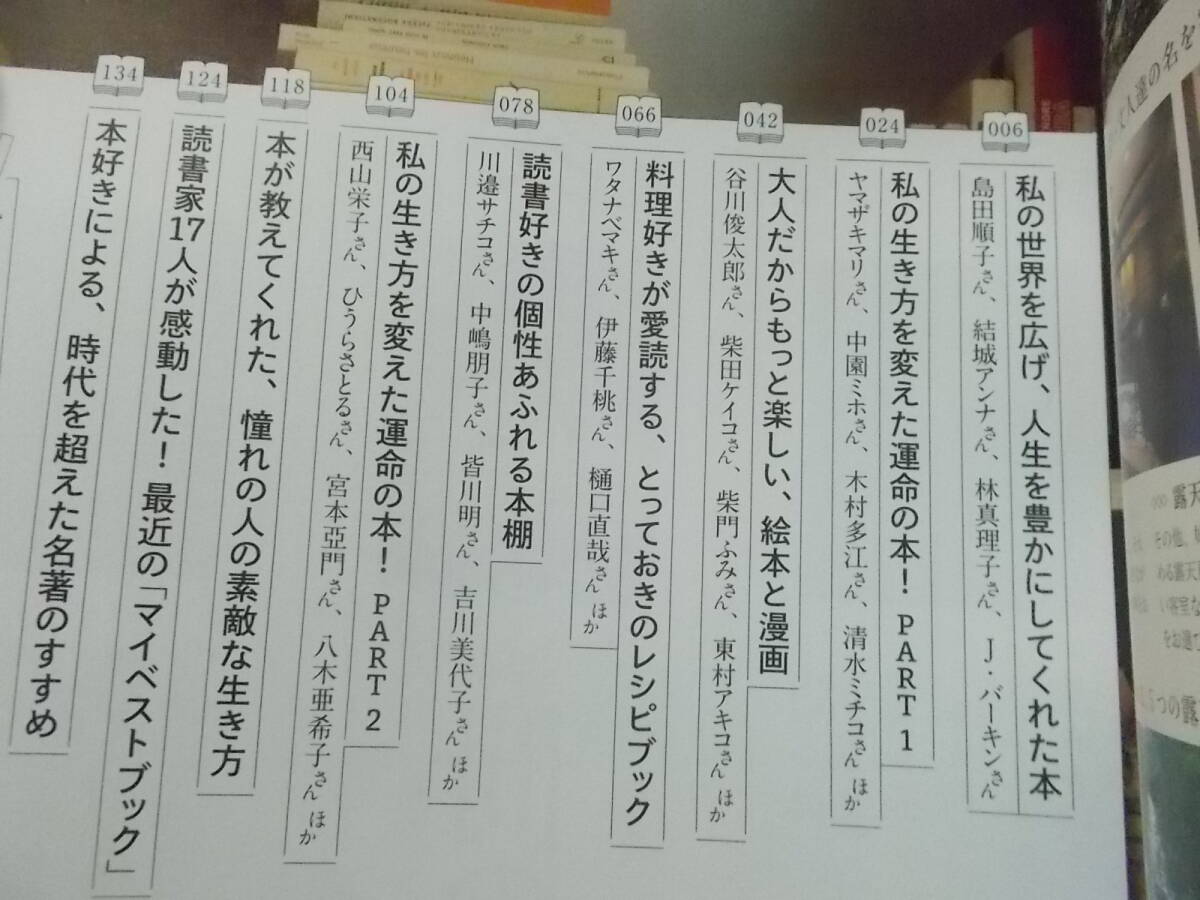 006
私の世界を広げ、人生を豊かにしてくれた本
島田順子さん、結城アンナさん、林真理子さん、J・バーキンさん
024
私の生き方を変えた運命の本! PART 1
ヤマザキマリさん、中園ミホさん、木村多江さん、清水ミチコさん ほか
042
大人だからもっと楽しい、絵本と漫画
谷川俊太郎さん、柴田ケイコさん、柴門ふみさん、東村アキコさん ほか
066
料理好きが愛読する、とっておきのレシピブック
ワタナベマキさん、伊藤千桃さん、樋口直哉さん ほか
078
読書好きの個性あふれる本棚
川邉サチコさん、中嶋朋子さん、皆川明さん、吉川美代子さん ほか
104
私の生き方を変えた運命の本! PART 2
西山栄子さん、ひうらさとるさん、宮本亞門さん、八木亜希子さん ほか
118
本が教えてくれた、憧れの人の素敵な生き方
124
読書家17人が感動した! 最近の「マイベストブック」
134
本好きによる、時代を超えた名著のすすめ
達の名を
露天
その他、
める露天
い客室な
をお過
つの露